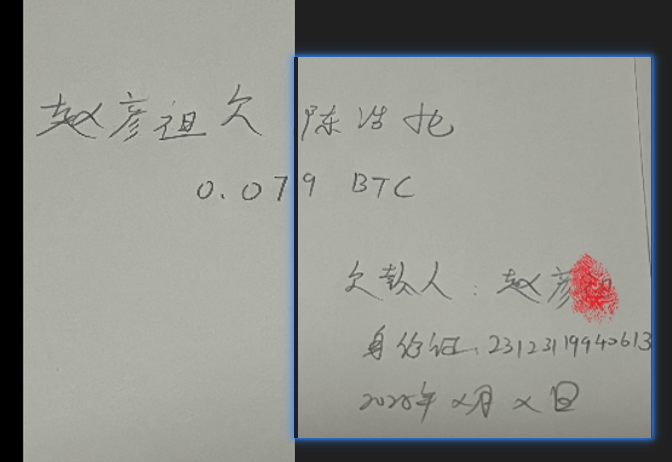 赵彦祖欠陈浩
0.079 BTC
欠款人：赵彦
身份证.23123119940613
2025年 x月 x日